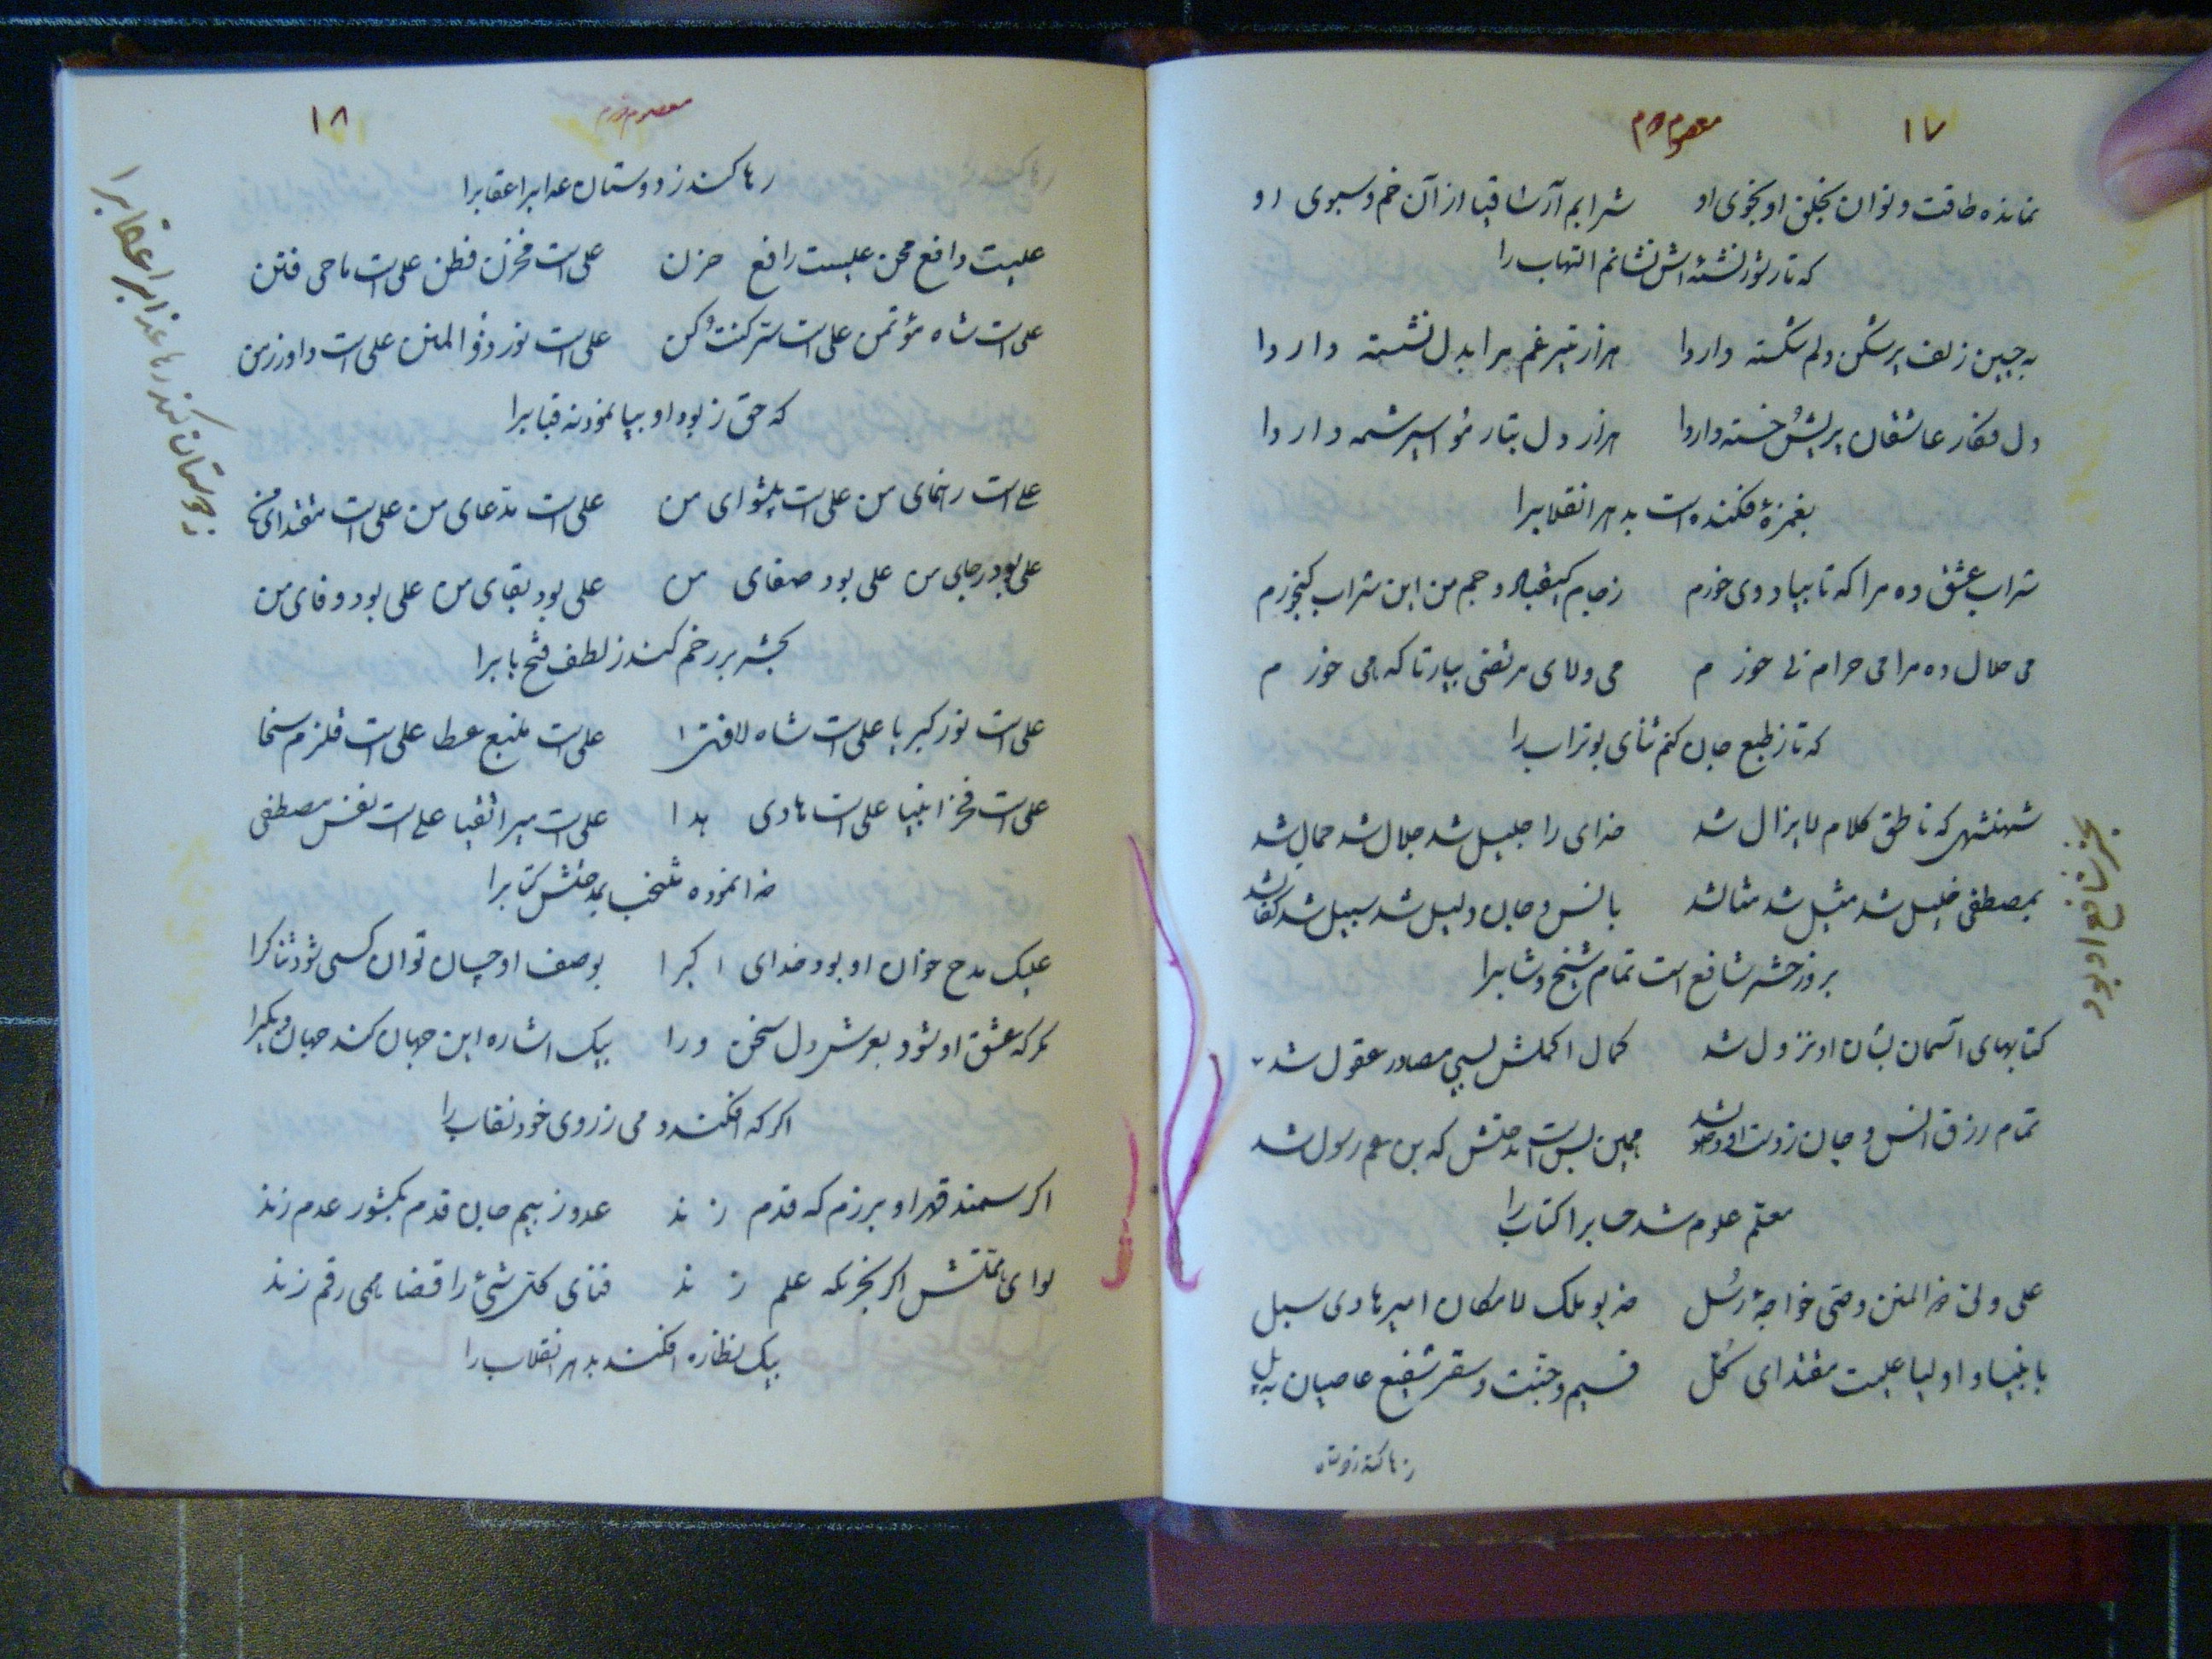 ۱۷
معصوم دوم
نمانده طاقت و توان بخلق او بخوی او شرابم آر ساقیا از آن خم و سبوی او
که تا ز نشئه اش نشانم التهاب را
به چین زلف پرشکن دلم شکسته داردا هزار تیر غم مرا بدل نشسته داردا
دل فکار عاشقان پریش و خسته داردا هزار دل بتار مو اسیر داردا
بغمزهٔ فکنده است بدهر انقلابرا
شراب عشق ده مرا که تا بیاد وی خورم ز جام کیقباد و جم من این شراب کی خورم
می حلال ده مرا می حرام نی خورم می ولای مرتضی بیار تا که هی خورم
که تا ز طبع جان کنم ثنای بوتراب را
شهنشهی که ناطق کلام لایزال شد خدای را جلیل شد جلال شد جمال شد
بمصطفی خلیل شد مثیل شد مثال شد بانس و جان دلیل شد سبیل شد
بروز حشر شافع است تمام شیخ و شابرا
بحشر شافع او بود
کتابهای آسمان بشان او نزول شد کمال اکملش بسی مصادر عقول شد
تمام رزق انس و جان ز دست او وصول شد همین بس است مدحتش که بن عم رسول شد
معلم علوم شد کتاب را
علی ولی ذوالمنن وصی خواجهٔ رسل خدیو ملک لامکان امیر هادی سبل
بانبیا و اولیا علیست مقتدای کل قسیم جنت و سقر شفیع عاصیان به پل
رها کند ز دوستان
۱۸
معصوم دوم
رها کند ز دوستان عذابرا عقابرا
ز دوستان کند رها عذابرا عقابرا
علیست دافع محن علیست رافع حزن علی است مخزن فطن علی است ماحی فتن
علی است شاه مؤتمن علی است سر کنت و کن علی است نور ذوالمنن علی است داور زمن
که حق ز بود او بپا نموده قبابرا
علی است رهنمای من علی است پیشوای من علی است مدعای من علی است مقتدای من
علی بود رجای من علی بود صفای من علی بود بقای من علی بود وفای من
بحشر بر رخم کند ز لطف فتح بابرا
علی است نور کبریا علی است شاه لافتی علی است منبع عطا علی است قلزم سخا
علی است فخر انبیا علی است هادی هدا علی است میر اتقیا علی است نفس مصطفی
خدا نموده منتخب بمدحتش کتابرا
علیک مدح خوان او بود خدای اکبرا بوصف او چسان توان کسی شود ثناگرا
هرکه عشق او شود بعرش دل سخن ورا بیک اشاره این جهان کند جهان دیگرا
اگر که افکند دمی ز روی خود نقاب را
اگر سمند قهر او برزم که قدم زند عدو ز بیم جان قدم بکشور عدم زند
لوای همتش اگر علم زند فنای کل شیئ را قضا همی رقم زند
بیک نظاره افکند بدهر انقلاب را